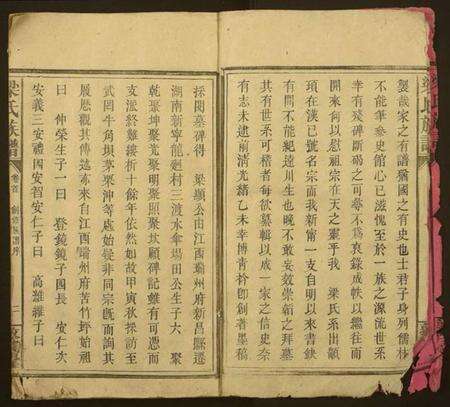 製哉家之有譜猶國之有史也士君子身列儒林
不能筆參史館心已滋愧至於一族之源流世系
幸有殘碑斷碣之可尋不爲裒錄成帙以繼往而
開來何以慰祖宗在天之靈乎我 梁氏系出顓
頊在漢已號名宗而我新甯一支自明以來書缺
有間不能紀遠川生也晚不敢妄效崇韜之拜墓
其有世系可稽者每欲纂輯以成一家之信史奈
有志未逮前清光緒乙未幸博青衿卽創著墨稿
採閱墓碑得 梁顯公由江西瑞州府新昌縣遷
湖南新寧龍廻村三渡水傘塲田公生子六 聚
乾聚坤聚光聚明聚照聚欽顧碑記雖有可憑而
支派終難縷析十餘年依然如故甲寅秋採訪至
武岡牛角垻茅栗沖等處始疑非同宗旣而詢其
履歷觀其傳述亦來自江西瑞州府苦竹坪始祖
曰 仲榮生子一曰 登鏡鏡子四長 安仁次
安義三安禮四安智安仁子曰 高濰濰子曰
梁氏族譜 卷首 創修族譜序